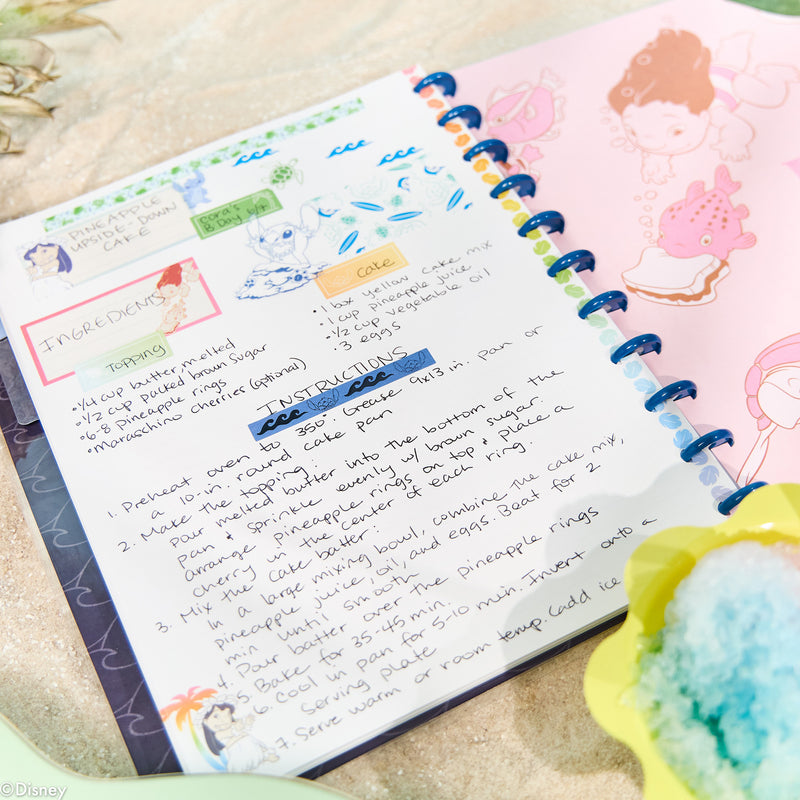 PINEAPPLE
UPSIDE-DOWN
CAKE
cora's
B Day 6/7
INGREDIENTS
TOPPING
• 1/4 cup butter, melted
• 1/2 cup packed brown sugar
• 6-8 pineapple rings
• maraschino cherries (optional)
CAKE
• 1 box yellow cake mix
• 1 cup pineapple juice
• 1/2 cup vegetable oil
• 3 eggs
INSTRUCTIONS
1. Preheat oven to 350°. Grease 9x13 in. pan or
a 10-in. round cake pan
2. Make the topping:
Pour melted butter into the bottom of the
pan & sprinkle evenly w/ brown sugar.
arrange pineapple rings on top & place a
cherry in the center of each ring.
3. Mix the cake batter:
In a large mixing bowl, combine the cake mix,
pineapple juice, oil, and eggs. Beat for 2
min until smooth
4. Pour batter over the pineapple rings
5. Bake for 35-45 min.
6. Cool in pan for 5-10 min. Invert onto a
serving plate
7. Serve warm or room temp. (add ice
©Disney